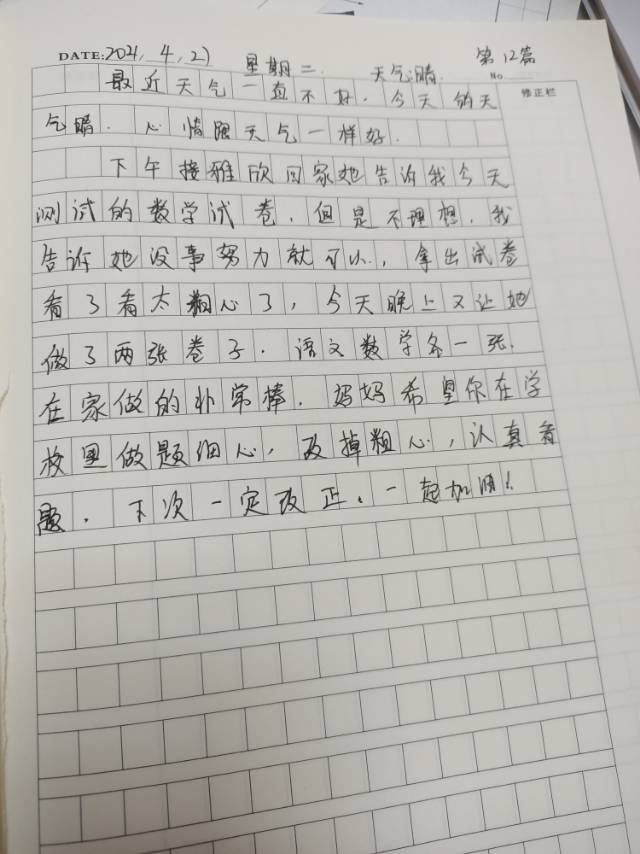 DATE: 2021. 4. 27 星期二 天气晴. 第12篇
No. 修正栏
最近天气一直不好. 今天的天
气晴. 心情跟天气一样好.
下午接雅欣回家她告诉我今天
测试的数学试卷, 但是不理想. 我
告诉她没事努力就可以, 拿出试卷
看了看太粗心了, 今天晚上又让她
做了两张卷子. 语文数学各一张.
在家做的非常棒. 妈妈希望你在学
校里做题细心, 改掉粗心, 认真看
题. 下次一定改正. 一起加油!